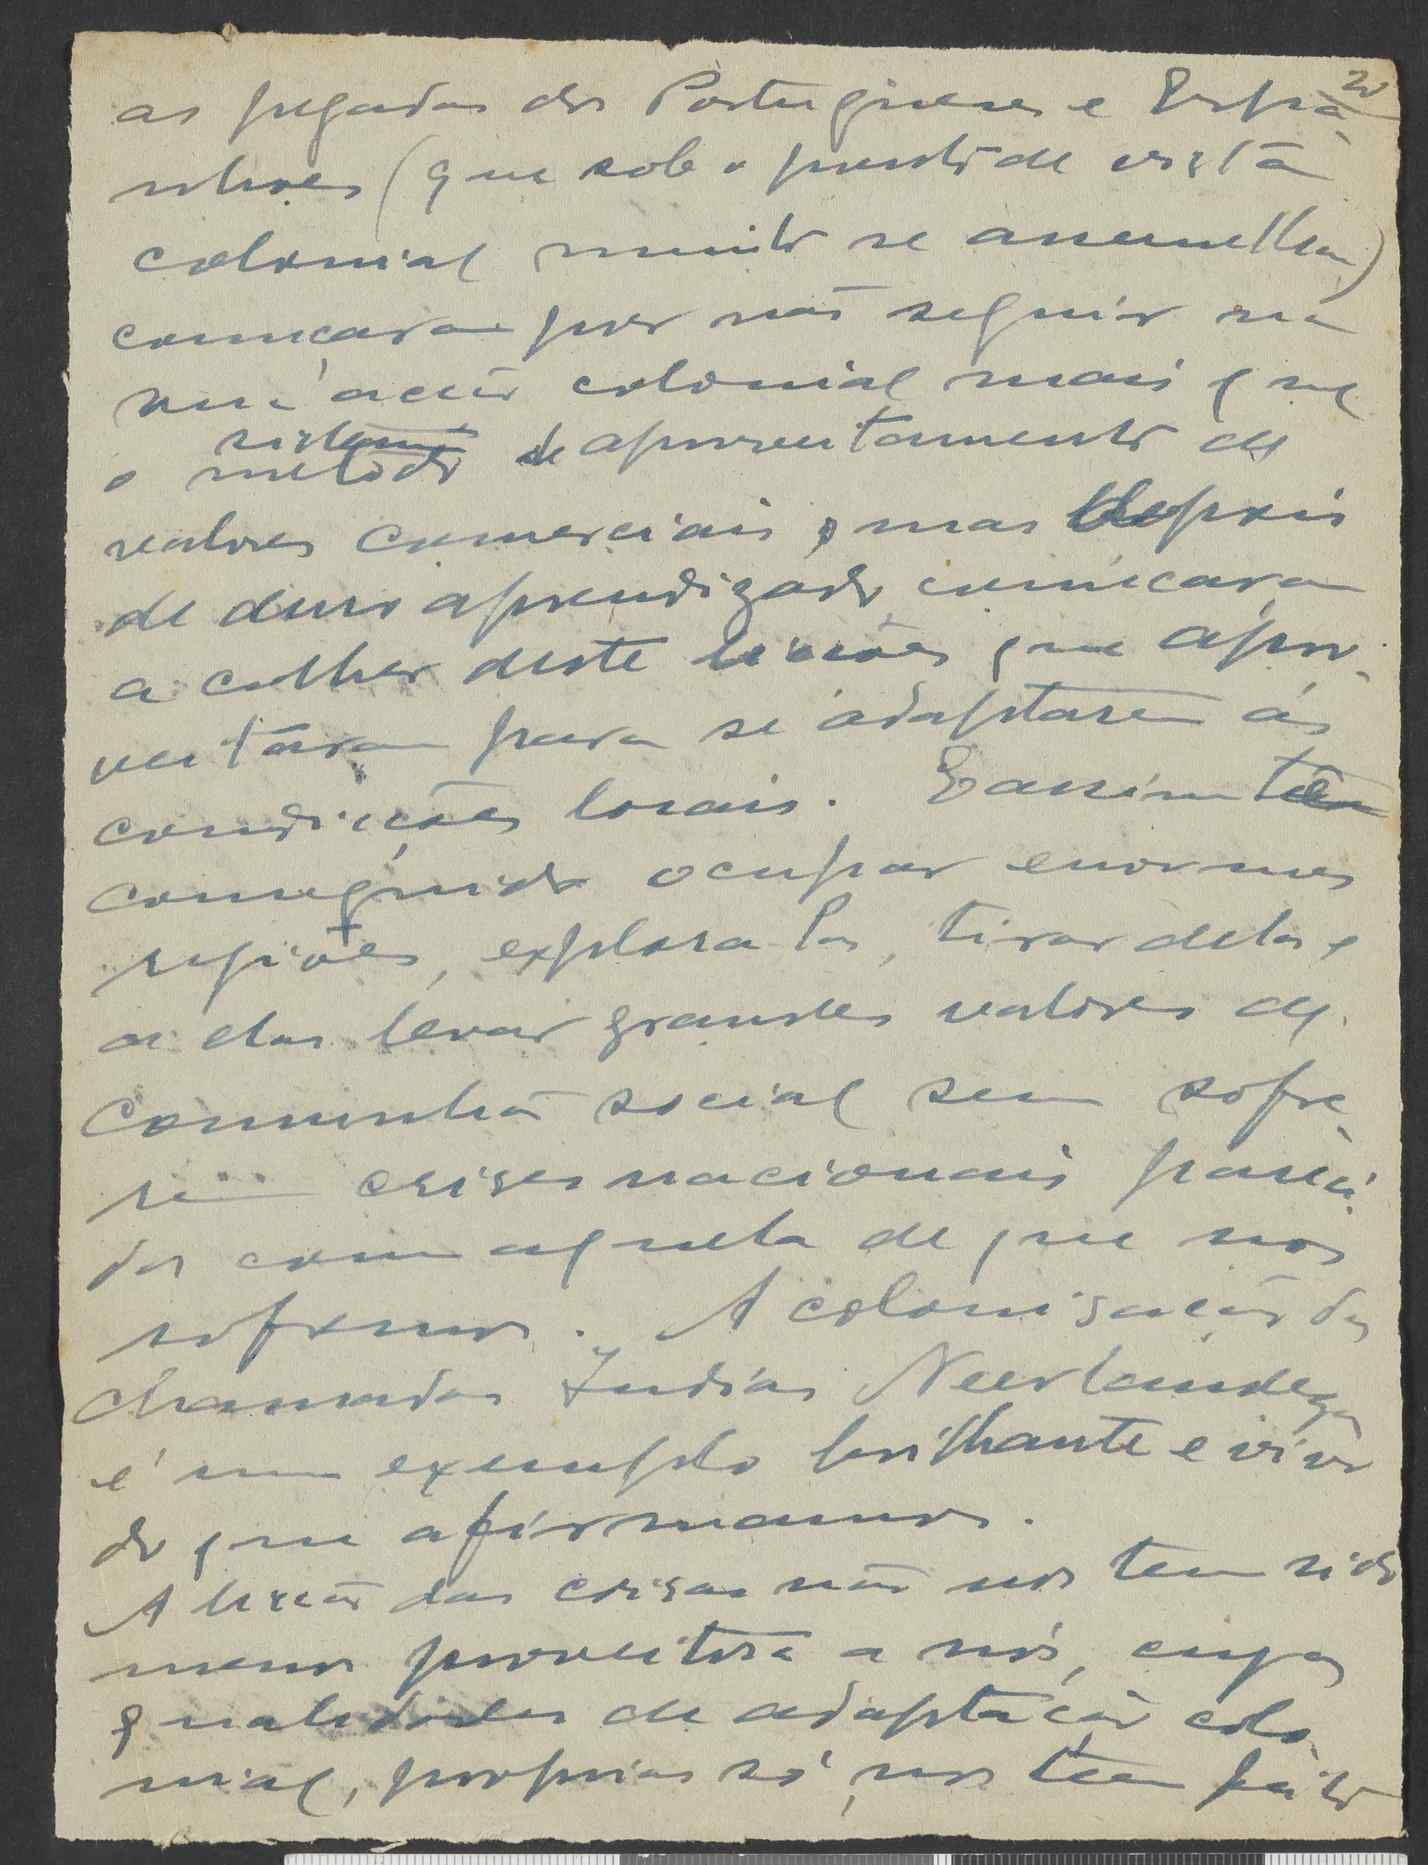 20
as pegadas dos Portuguezes e Espa-
nhoes (que sob o ponto de vista
colonial muito se assemelham)
começaram por não seguir na
sua acção colonial mais que
sistema
o metodo de aproveitamento de
valores comerciais, mas depois
de duro aprendizado começaram
a colher deste licções que apro-
veitaram para se adaptarem ás
condicções locais. E assim teem
conseguido ocupar enormes
regiões, explora-las, tirar delas e
a elas levar grandes valores de
comunhão social sem sofre-
rem crises nacionais pareci-
das com aquela de que nos
sofremos. A colonisação das
chamadas Indias Neerlandezas
é um exemplo brilhante e vivo
do que afirmamos.
A licção das coisas não nos tem sido
menos proveitosa a nós, cujas
qualidades de adaptação colo-
nial, proprias só, nos teem feito